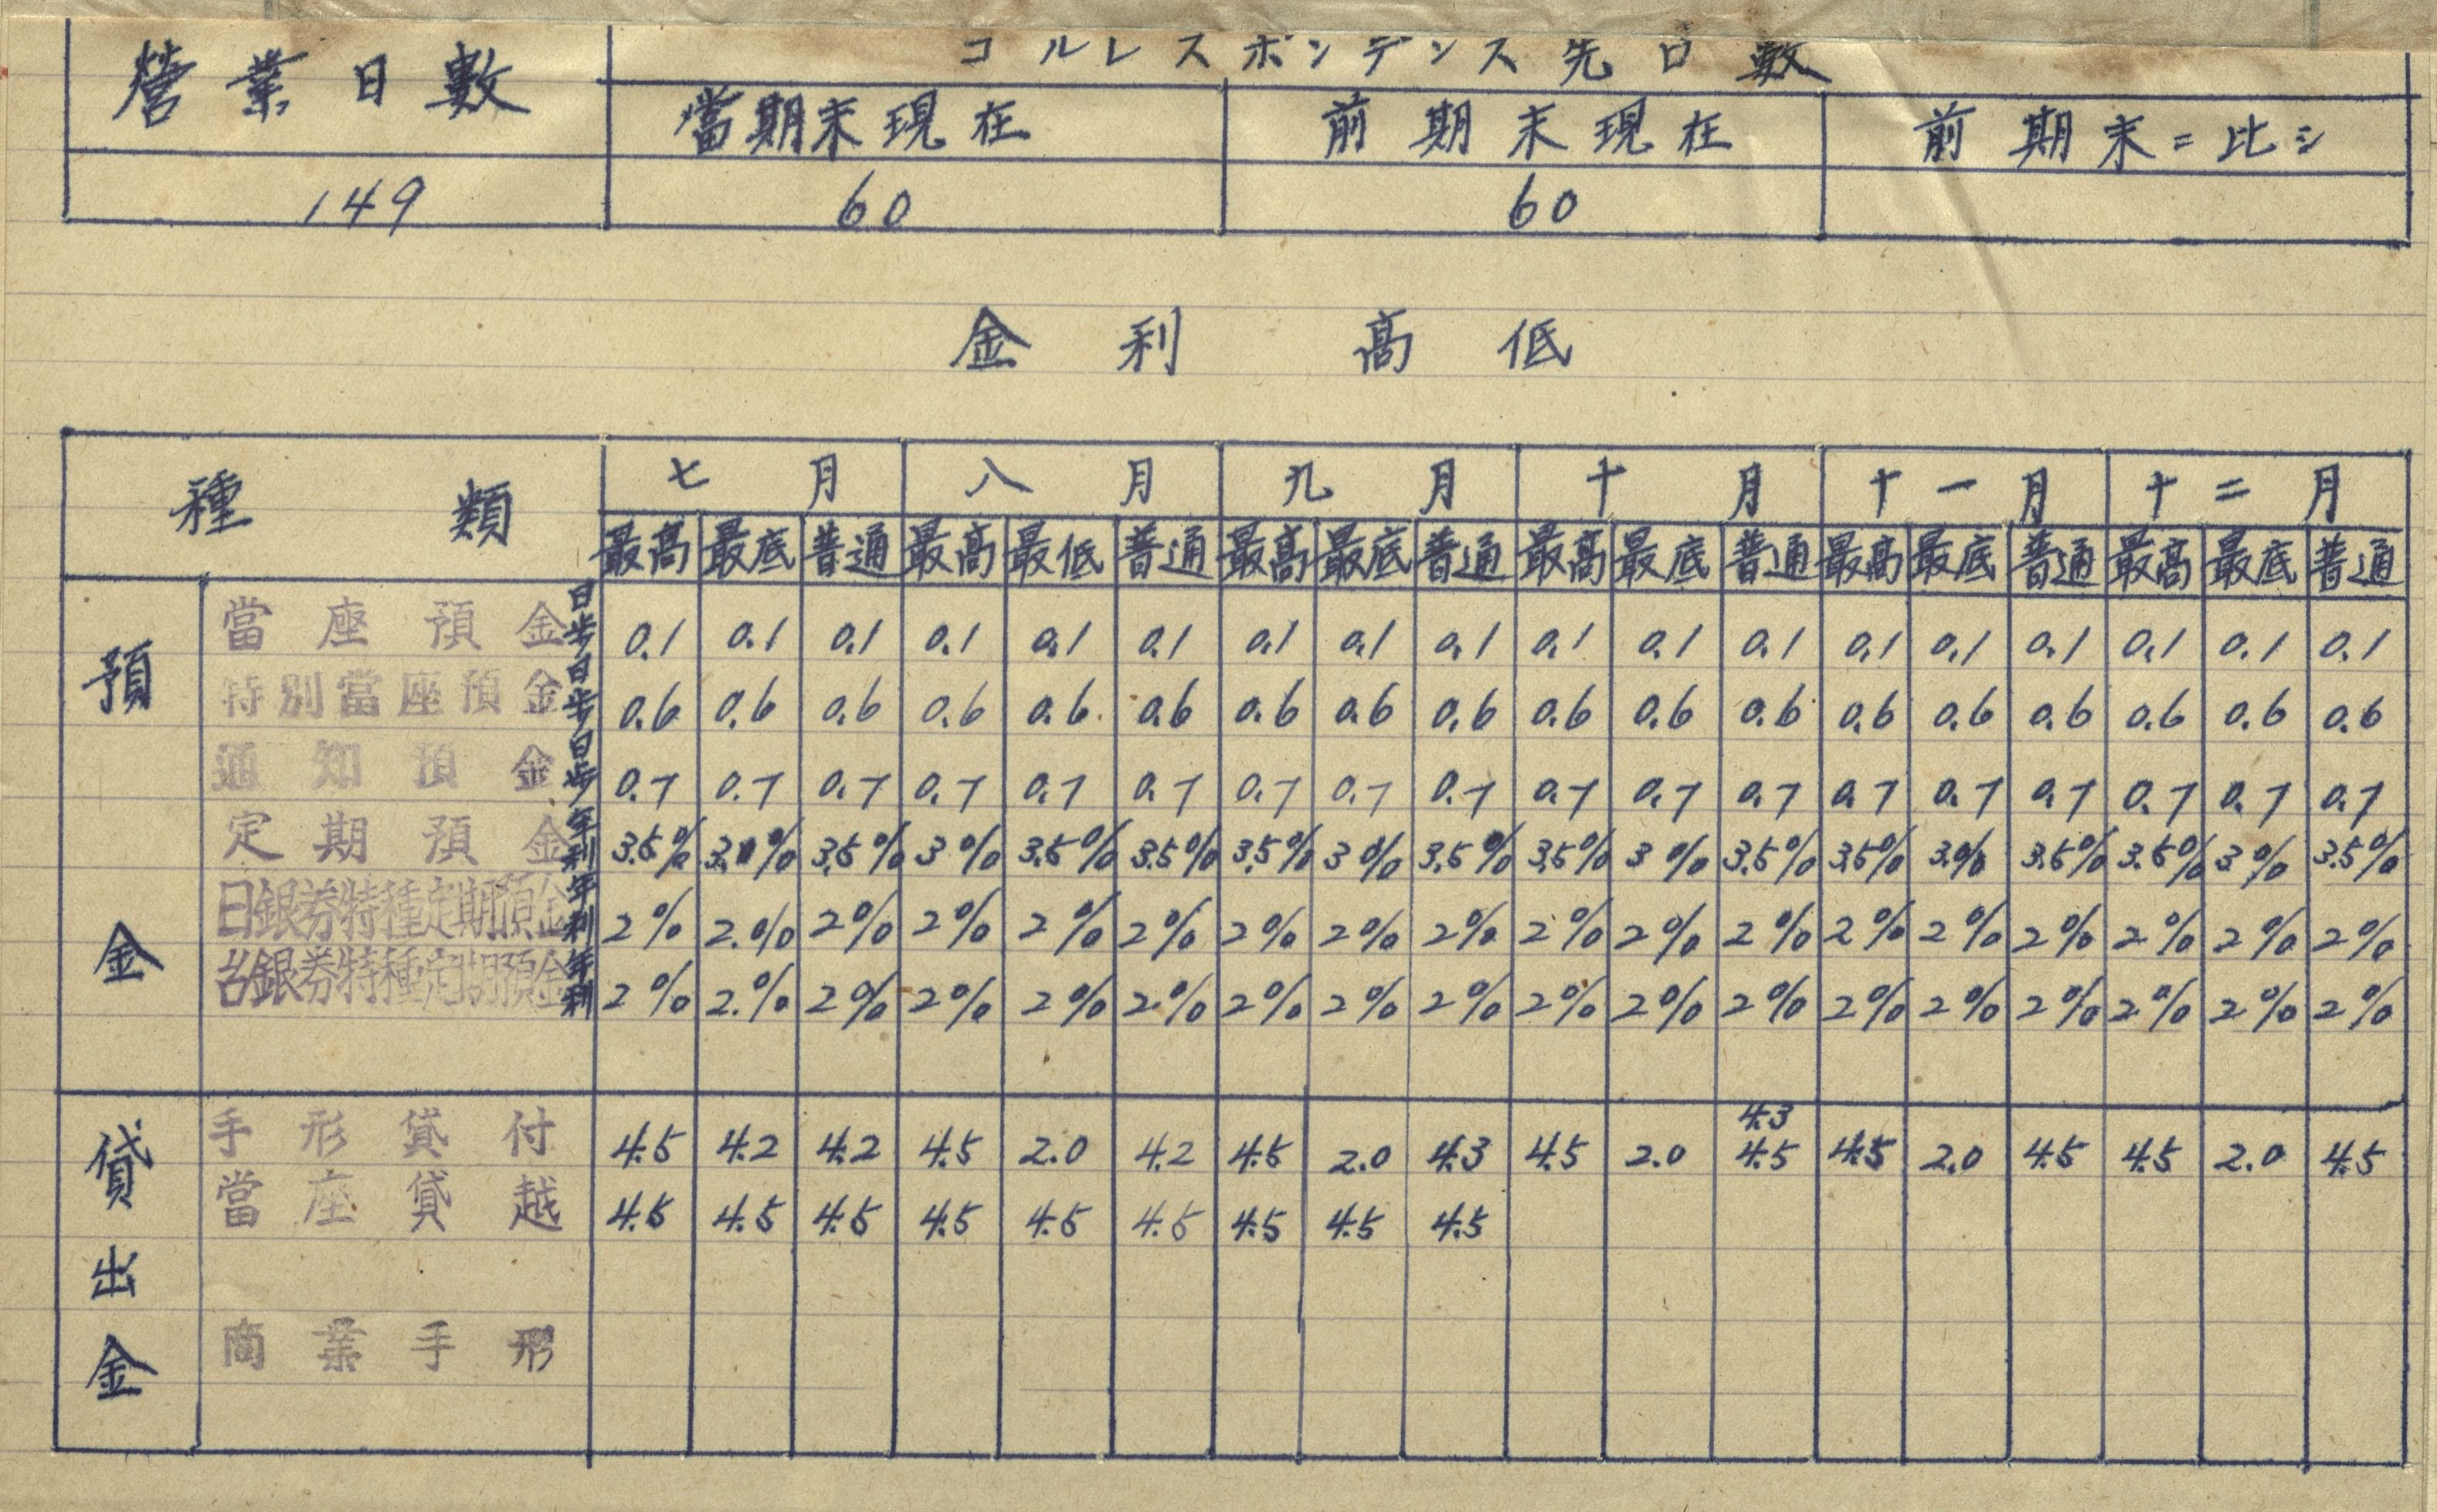 コルレスポンデンス先口數
營業日數 當期末現在 前期末現在 前期末ニ比シ
149 60 60
金利高低
種類 七月 八月 九月 十月 十一月 十二月
最高 最底 普通 最高 最低 普通 最高 最底 普通 最高 最底 普通 最高 最底 普通 最高 最底 普通
預金
當座預金 日歩 0.1 0.1 0.1 0.1 0.1 0.1 0.1 0.1 0.1 0.1 0.1 0.1 0.1 0.1 0.1 0.1 0.1 0.1
特別當座預金 日歩 0.6 0.6 0.6 0.6 0.6 0.6 0.6 0.6 0.6 0.6 0.6 0.6 0.6 0.6 0.6 0.6 0.6 0.6
通知預金 日歩 0.7 0.7 0.7 0.7 0.7 0.7 0.7 0.7 0.7 0.7 0.7 0.7 0.7 0.7 0.7 0.7 0.7 0.7
定期預金 年利 3.5% 3.% 3.5% 3% 3.5% 3.5% 3.5% 3% 3.5% 3.5% 3% 3.5% 3.5% 3.% 3.5% 3.5% 3% 3.5%
日銀券特種定期預金 年利 2% 2.% 2% 2% 2% 2% 2% 2% 2% 2% 2% 2% 2% 2% 2% 2% 2% 2%
台銀券特種定期預金 年利 2% 2.% 2% 2% 2% 2% 2% 2% 2% 2% 2% 2% 2% 2% 2% 2% 2% 2%
貸出金
4.3
手形貸付 4.5 4.2 4.2 4.5 2.0 4.2 4.5 2.0 4.3 4.5 2.0 4.5 4.5 2.0 4.5 4.5 2.0 4.5
當座貸越 4.5 4.5 4.5 4.5 4.5 4.5 4.5 4.5 4.5
商業手形